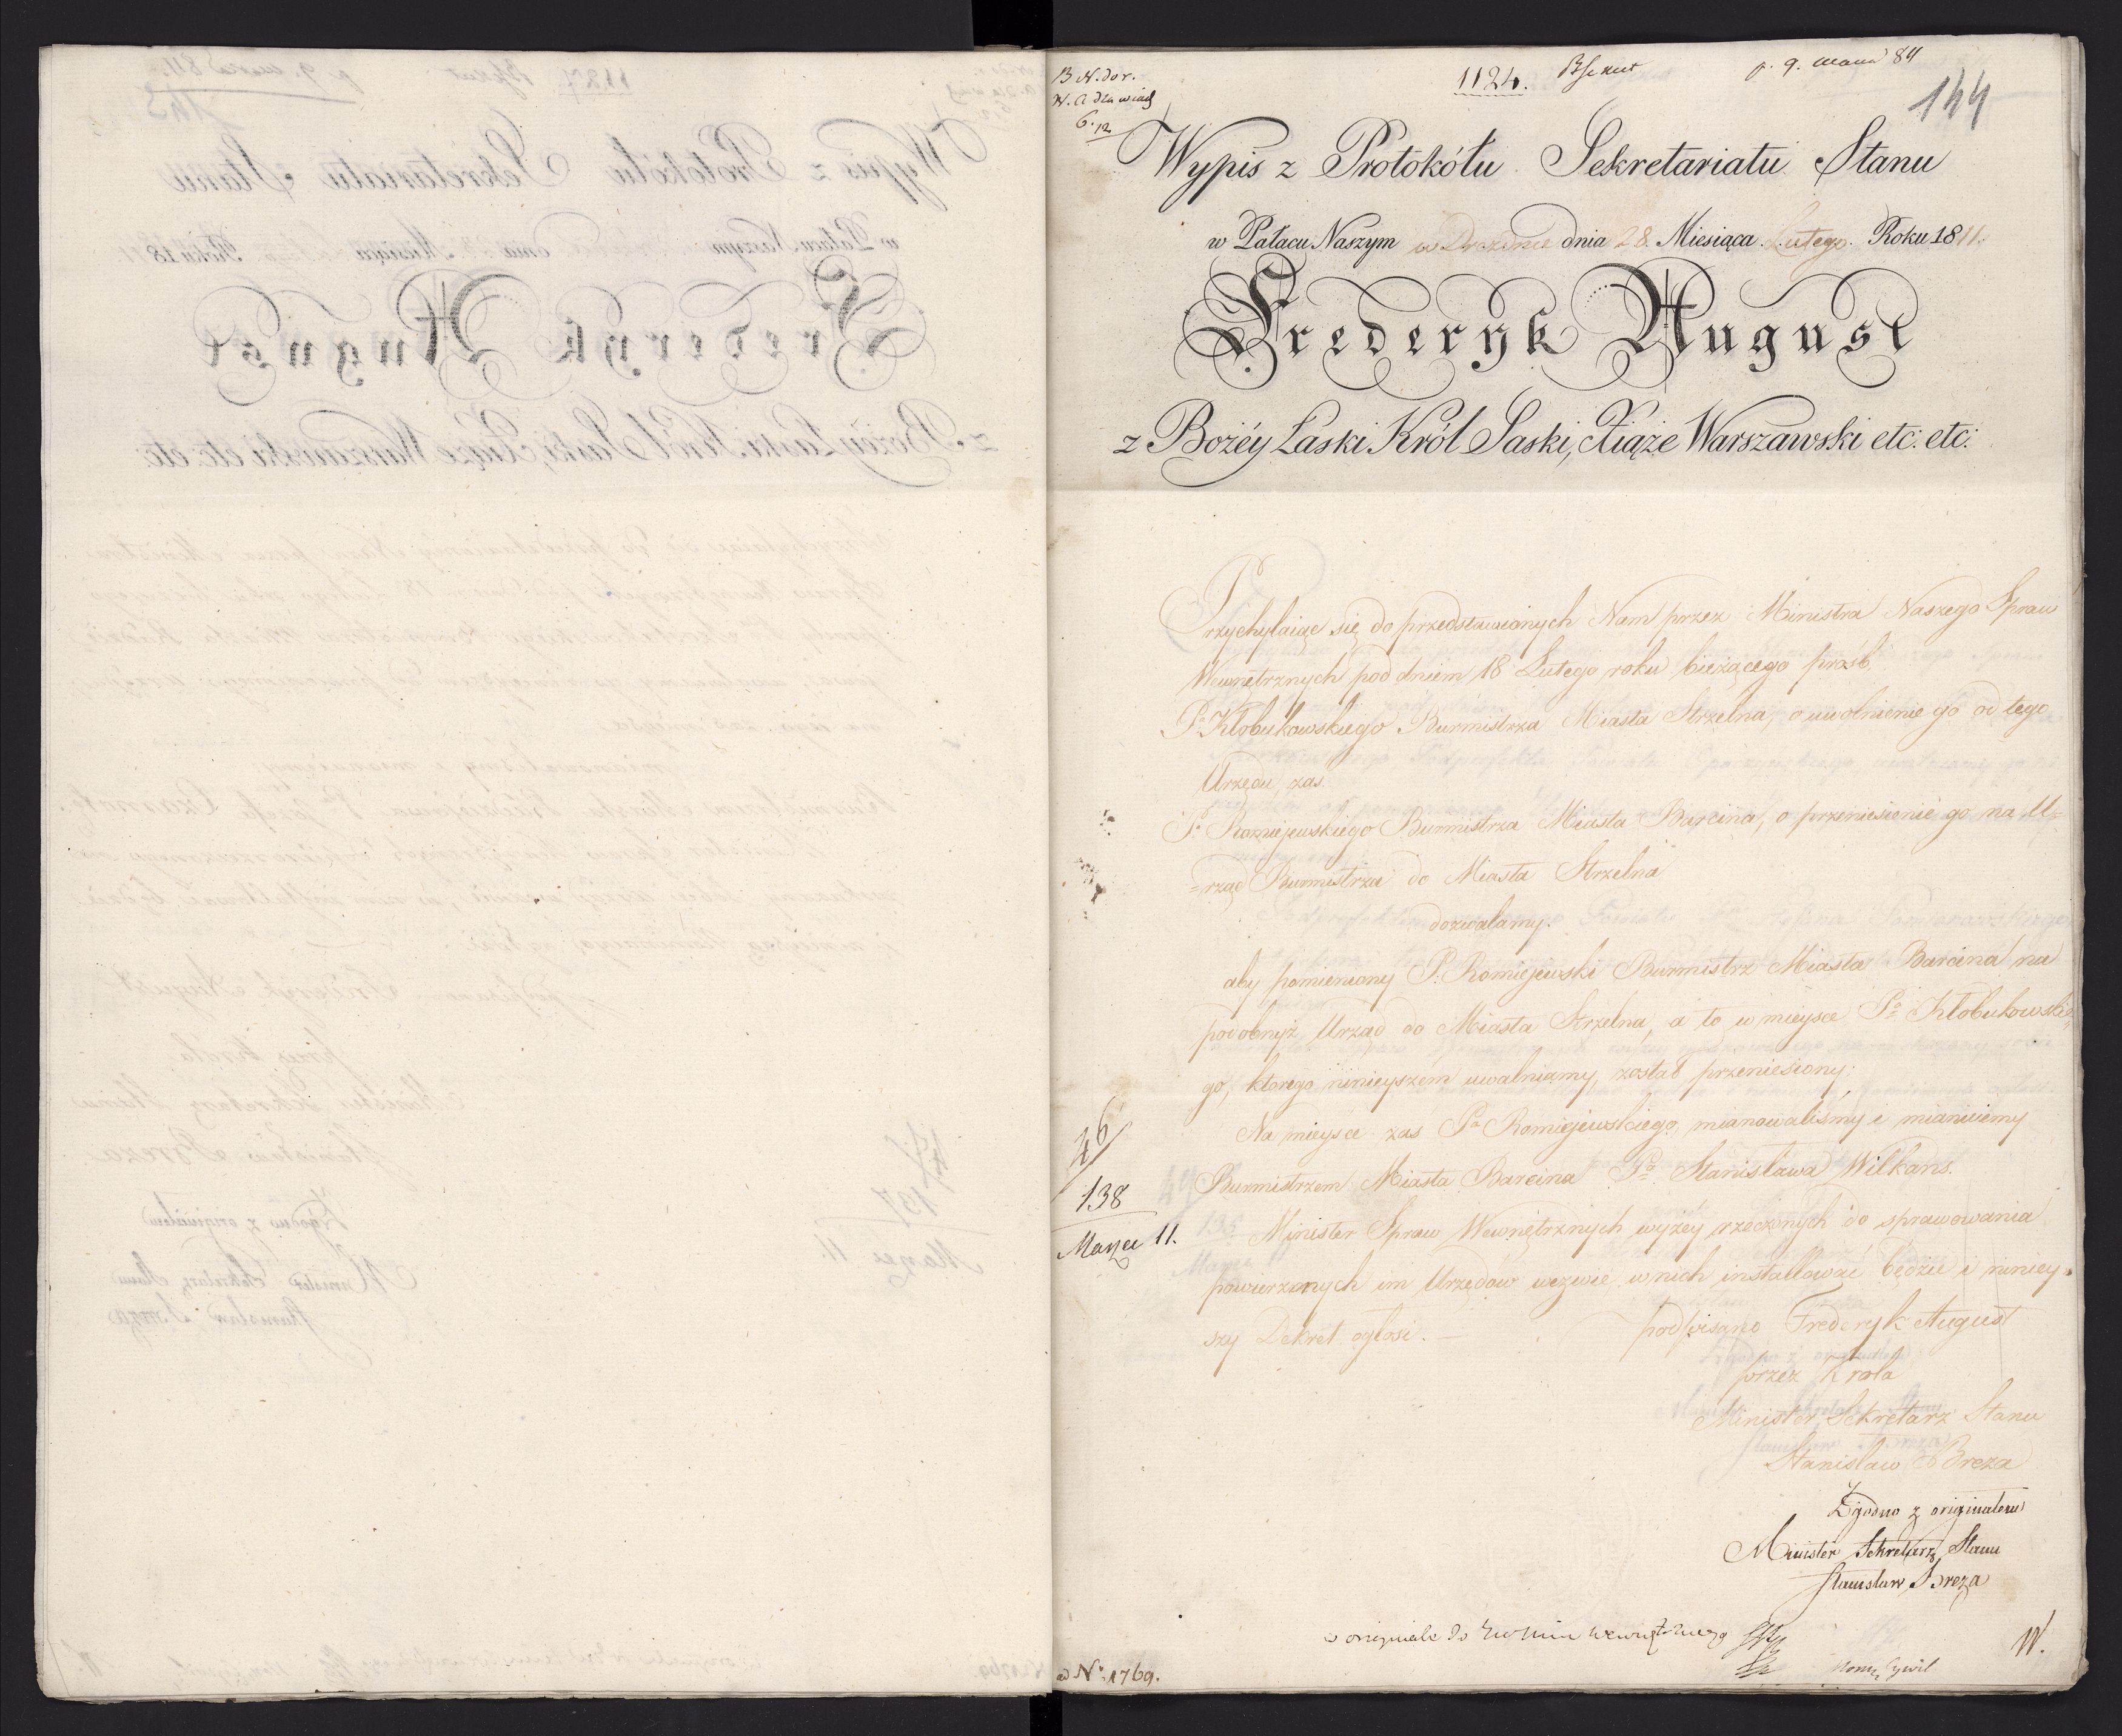 B N. dor.
1124.
p. 9. 84
144
6. 12
Wypis z Protokółu Sekretariatu Stanu
w Pałacu Naszym w Dreznie dnia 28. Miesiąca Lutego. Roku 1811.
Frederyk August
z Bożéy Łaski Król Saski, Xiąże Warszawski etc: etc:
Przychylaiąc się do przedstawionych Nam przez Ministra Naszego Spraw
Wewnętrznych pod dniem 18 Lutego roku bieżącego prośb
Pa Kłobukowskiego Burmistrza Miasta Strzelna, o uwolnienie go od tego
Urzędu, zas
Pa Romiejewskiego Burmistrza Miasta Barcina, o przeniesienie go na U=
=rząd Burmistrza do Miasta Strzelna
dozwalamy.
aby pomieniony P. Romiejewski Burmistrz Miasta Barcina na
podobnyż Urząd do Miasta Strzelna, a to w mieysce Pa Kłobukowskie=
go, ktorego ninieyszem uwalniamy, został przeniesiony;
Na mieysce zaś Pa Romiejewskiego, mianowaliśmy i mianuiemy
Burmistrzem Miasta Barcina Pa Stanisława Wilkans.
Minister Spraw Wewnętrznych wyżey rzeczonych do sprawowania
powierzonych im Urzędow wezwie, w nich installować będzie i niniey=
szy Dekret ogłosi. —
podpisano Frederyk August
przez Krola
Minister Sekretarz Stanu
Stanisław Breza
Zgodno z originałem
Minister Sekretarz Stanu
Stanisław Breza
46
138
Marzec 11.
w originale do
W.
ad No. 1769.